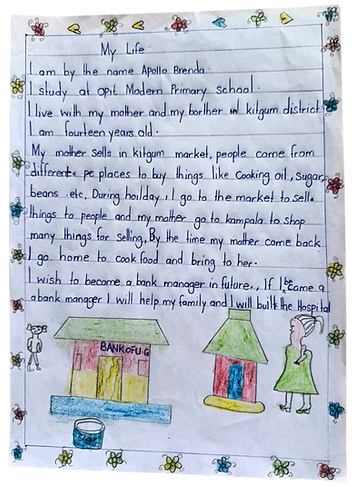 My Life
I am by the name Apollo Brenda.
I study at opit Modern Primary School.
I live with my mother and my borther in kitgum district
I am fourteen years old.
My mother sells in kitgum market, people come from
different pe places to buy things like Cooking oil, Sugar,
beans etc. During hoilday, I go to the market to sell
things to people and my mother go to kampala to shop
many things for selling, By the time my mother come back
I go home to cook food and bring to her.
I wish to become a bank manager in future., If I became a
a bank manager I will help my family and I will built the Hospital
BANK OF U.G